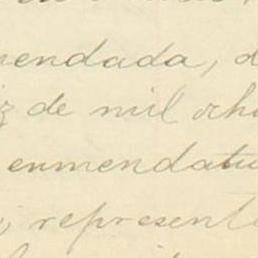 endada, d
iz de mil ocho
enmendatu
represent